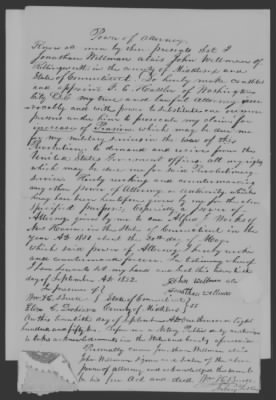 Power of Attorney
Know all men by these presents that I
Jonathan Willman alais John Willman of
Killingworth in the county of Middlesex and
State of Connecticut. Do hereby make constitute
and appoint of Washington
City D.C. my true and lawful attorney irre-
vocably and with power to substitute one or more
persons under him to prosecute my claim for
increase of Pension which may be due me
for my military services in the War of the
Revolution to demand and receive from the
United States Government offices all my rights
which may be due me for said Revolutionary
services. Hereby revoking and countermanding
any other power of Attorney or authority which
may have been heretofore given by me for the above
specified purposes; Especially a power of
Attorney given by me to one Alfred
New Haven in the State of Connecticut in the
year AD 1851 about the 20th day of
Which said power of Attorney I hereby revoke
and countermand forever. In testimony whereof
I have hereunto set my hand and seal this twentieth
day of September Ad 1852.
John Willman als
Jonathan Willman
In presence of
State of Connecticut
County of Middlesex } SS
On this twentieth day of September AD one thousand Eight
hundred and fifty two, Before me a Notary Public duly authorized
to take acknowledgments in the State and county aforesaid
Personally came Jonathan Willman alais
John Willman signer and sealer of the above
power of attorney and acknowledged the same to
be his free act and deed